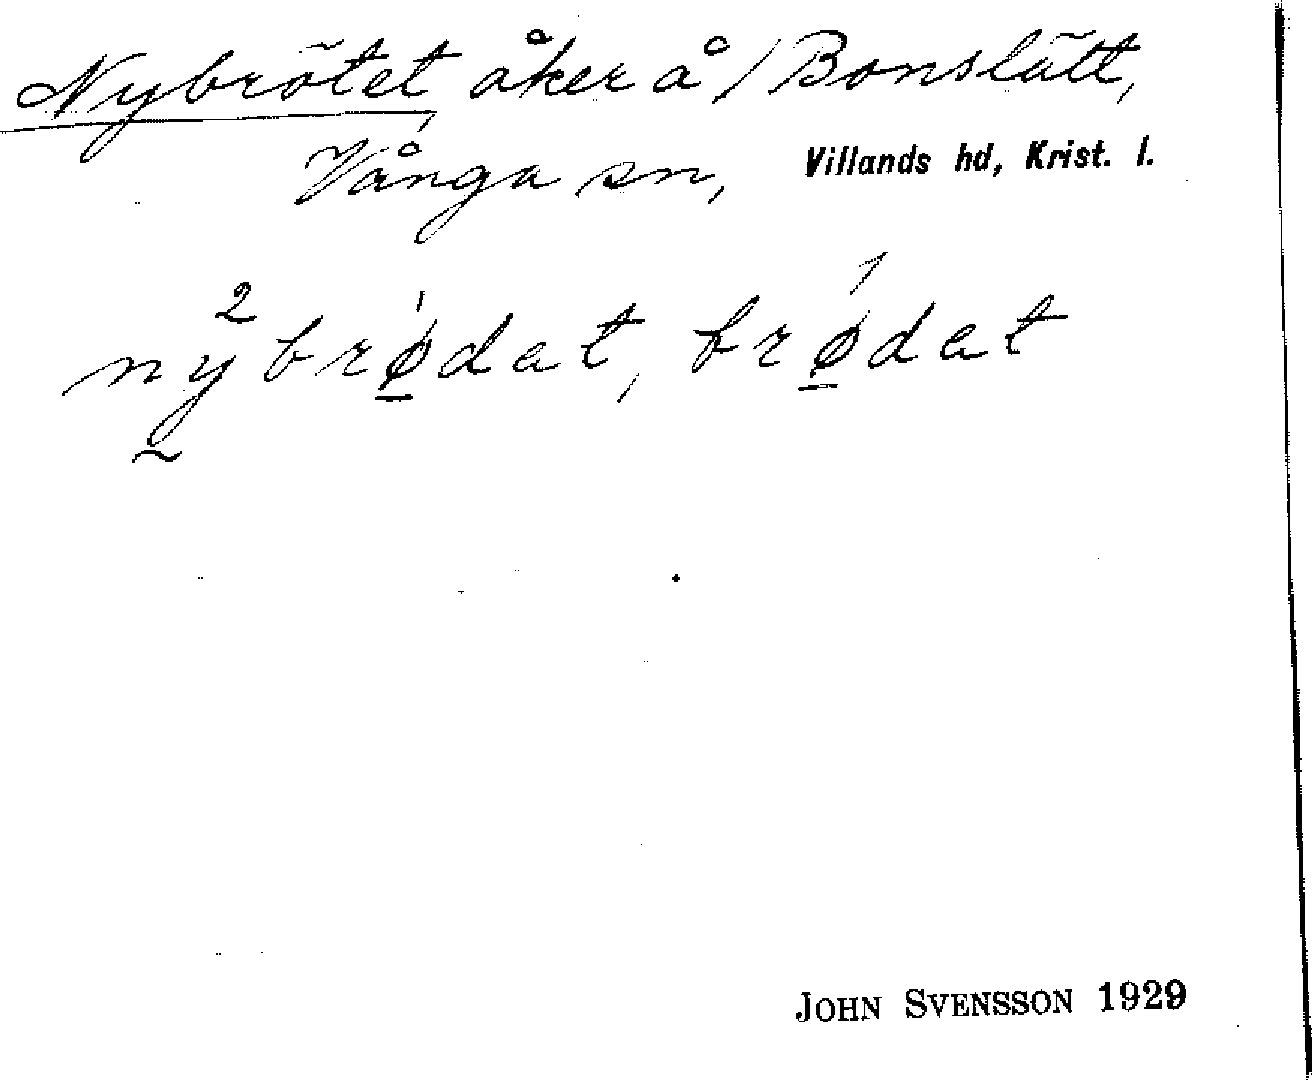 Nybrötet, åker å / Bonslätt,
Vånga sn, Villands hd, Krist. l.
nybrødat, brødat
JOHN SVENSSON 1929